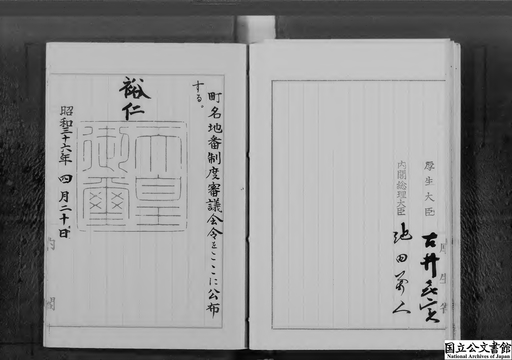 厚生大臣
古井喜実
内閣総理大臣
池田勇人
町名地番制度審議会令をここに公布
する。
裕仁
天皇
御璽
昭和三十六年四月二十日
内閣
National Archives of Japan
国立公文書館